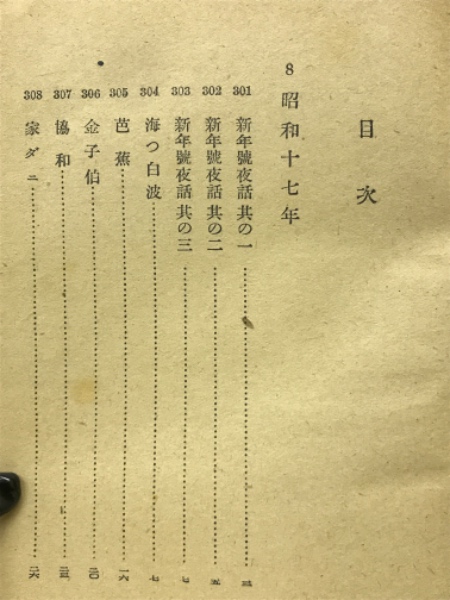 目次
8 昭和十七年
301 新年號夜話 其の一
302 新年號夜話 其の二
303 新年號夜話 其の三
304 海つ白波
305 芭蕉
306 金子伯
307 協和
308 家ダニ